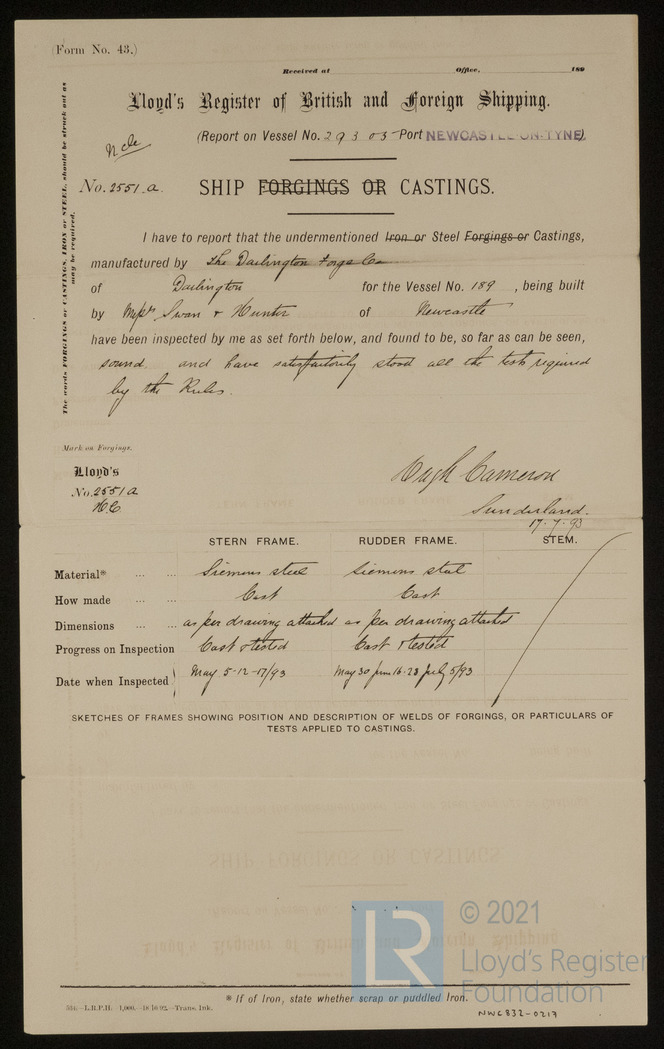 (Form No. 43.)
Received at Office, 189
Lloyd's Register of British and Foreign Shipping.
(Report on Vessel No. 29303 Port NEWCASTLE-ON-TYNE)
Ncle
No. 2551a SHIP FORGINGS OR CASTINGS.
The words FORGINGS or CASTINGS, IRON or STEEL, should be struck out as may be required.
I have to report that the undermentioned Iron or Steel Forgings or Castings,
manufactured by The Darlington Forge Co
of Darlington for the Vessel No. 189, being built
by Messrs Swan & Hunter of Newcastle
have been inspected by me as set forth below, and found to be, so far as can be seen,
sound. and have satisfactorily stood all the tests required
by the Rules.
Mark on Forgings.
Lloyd's
No. 2551a
H.C
Hugh Cameron
Sunderland.
17.7.93
STERN FRAME. RUDDER FRAME. STEM.
Material* ... ... Siemens steel Siemens steel
How made ... ... Cast Cast
Dimensions ... ... as per drawing attached as per drawing attached
Progress on Inspection Cast & tested Cast & tested
Date when Inspected May 5-12-17/93 May 30 June 16-23 July 5/93
SKETCHES OF FRAMES SHOWING POSITION AND DESCRIPTION OF WELDS OF FORGINGS, OR PARTICULARS OF
TESTS APPLIED TO CASTINGS.
LR
© 2021
Lloyd's Register
Foundation
* If of Iron, state whether scrap or puddled Iron.
L.R.P.H. 1,000.—18/10/92.—Trans. Ink.
NWC832-0217